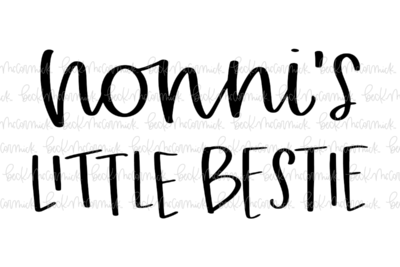 nonni's
LITTLE BESTIE